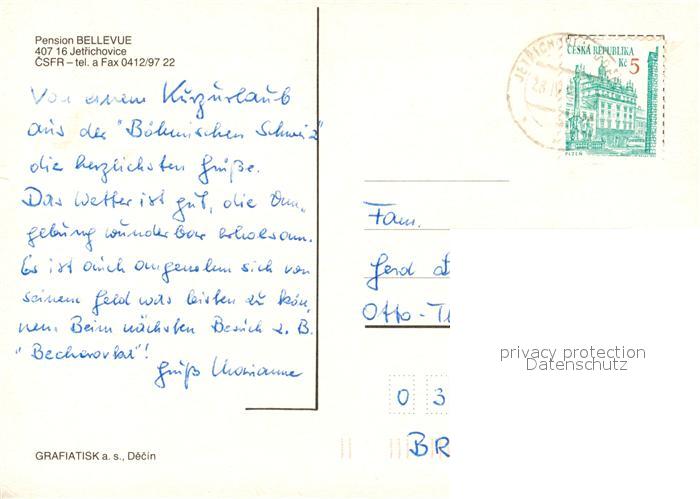 Pension BELLEVUE
407 16 Jetřichovice
ČSFR – tel. a Fax 0412/97 22
Von einem Kurzurlaub
aus der "Böhmischen Schweiz"
die herzlichsten Grüße.
Das Wetter ist gut, die Um-
gebung wunderbar erholsam.
Es ist auch angenehm sich von
seinem Geld was leisten zu kön-
nen. Beim nächsten Besuch z. B.
"Becherovka"!
Gruß Marianne
GRAFIATISK a. s., Děčín
JETŘICHOV
ČESKÁ REPUBLIKA
Kč 5
PLZEŇ
Fam.
Gerd
Otto-
privacy protection
Datenschutz
0 3
BR